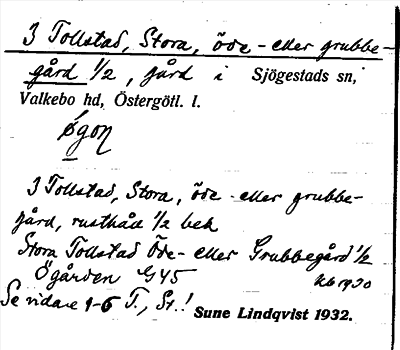 3 Tollstad, Stora, öde- eller grubbe-
gård 1/2, gård i Sjögestads sn,
Valkebo hd, Östergötl. l.
3 Tollstad, Stora, öde- eller grubbe-
gård, rusthåll 1/2 
Stora Tollstad Öde- eller Grubbegård 1/2
Ögården G45 kb 1930
Se vidare 1-6 T., St.!
Sune Lindqvist 1932.